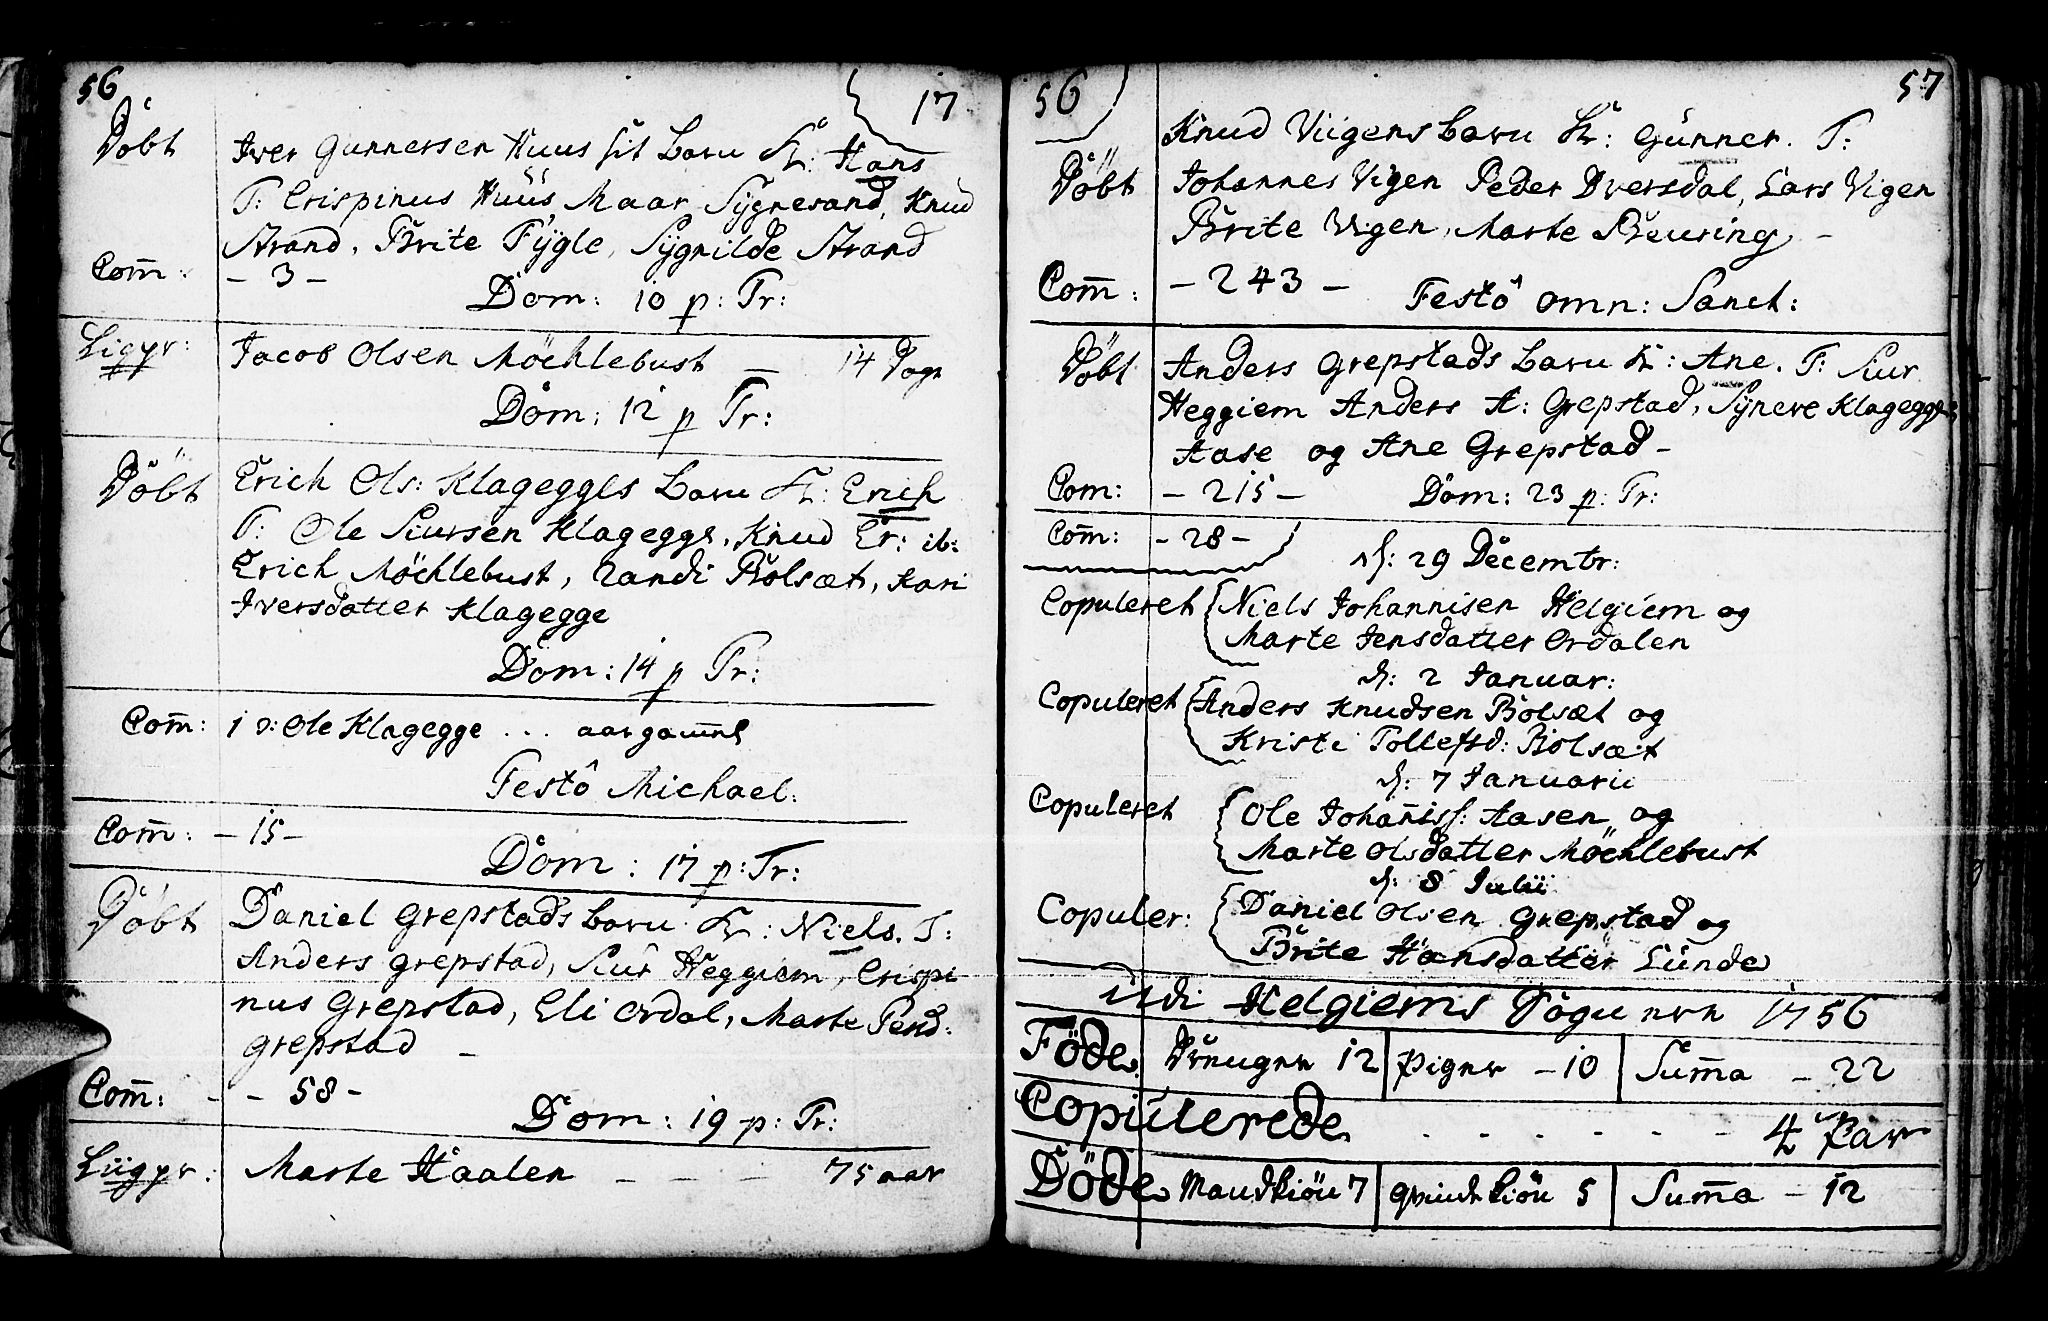 56
17
Döbt Iver Gunnersen Huus sit Barn K: Hans
T: Crispinus Huus Maar Sygnesand, Knud
Strand, Brite Fygle, Sygnilde Strand
Com̅: - 3 -
Dom: 10 p: Tr:
Ligpr: Jacob Olsen Möchlebust — 14 Dage
Dom: 12 p Tr:
Döbt Erich Ols: Klagegges Barn K: Erich
T: Ole Siursen Klagegge, Knud Er: ib:
Erich Möchlebust, Randi Bolsæt, Kari
Iversdatter Klagegge
Dom: 14 p Tr:
Com̅: 1 ɔ: Ole Klagegge ... aar gam̅el
Festô Michael:
Com̅: - 15 -
Dom: 17 p: Tr:
Döbt Daniel Grepstads Barn K: Niels. T:
Anders Grepstad, Siur Heggiem, Crispi
nus Grepstad, Eli Ordal, Marte Pesd:
Grepstad -
Com̅: - - 58 -
Dom: 19 p: Tr:
Liigpr: Marte Haalen - - - 75 aar
56
57
Knud Viigens Barn K: Gunner. T:
Döbt Johannes Vigen Peder Dversdal, Lars Vigen
Brite Vigen, Marte Beuring -
Com̅: - 243 -
Festô omn: Sanct:
Döbt Anders Grepstads Barn K: Ane. T: Siur
Heggiem Anders A: Grepstad, Syneve Klagegge,
Aase og Ane Grepstad -
Com: - 215 -
Dom: 23 p: Tr:
Com̅: - 28 -
d: 29 Decembr:
Copuleret Niels Johannisen Helgiem og
Marte Jensdatter Ordalen
d: 2 Januar:
Copuleret Anders Knudsen Bolsæt og
Kristi Tollefsd: Bolsæt
d: 7 Januarii
Copuleret Ole Johan̅iss: Aasen og
Marte Olsdatter Möchlebust
d: 8 Julii
Copuler: Daniel Olsen Grepstad og
Brite Hansdatter Lunde
udi Helgiems Sogn er 1756
Föde Drenger 12 Piger - 10 Sum̅a - 22
Copulerede - - - - - - 4 Par
Döde Mandkiön 7 Qvindekiön 5 Sum̅a - 12